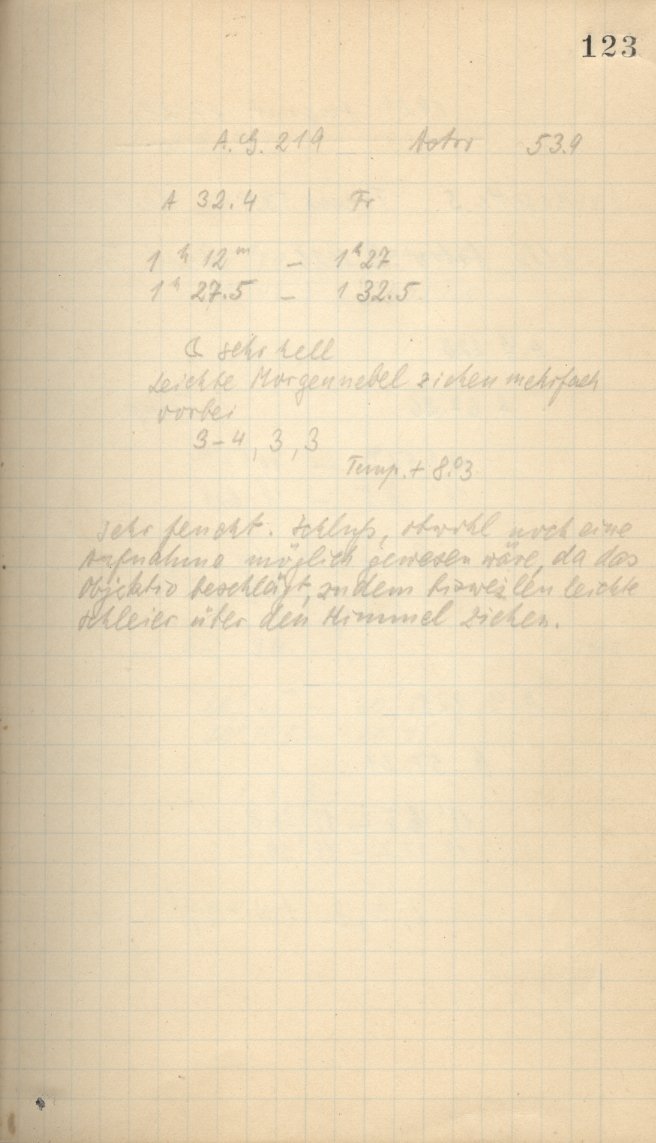 123
A.G. 219 Astr 53.9
A 32.4 | Fr
1 h 12 m – 1 h 27
1 h 27.5 – 1 32.5
☾ sehr hell
Leichte Morgennebel ziehen mehrfach
vorbei
3–4, 3, 3
Temp. + 8.°3
Sehr feucht. Schluß, obwohl noch eine
Aufnahme möglich gewesen wäre, da das
Objektiv beschlägt, zudem bisweilen leichte
Schleier über den Himmel ziehen.